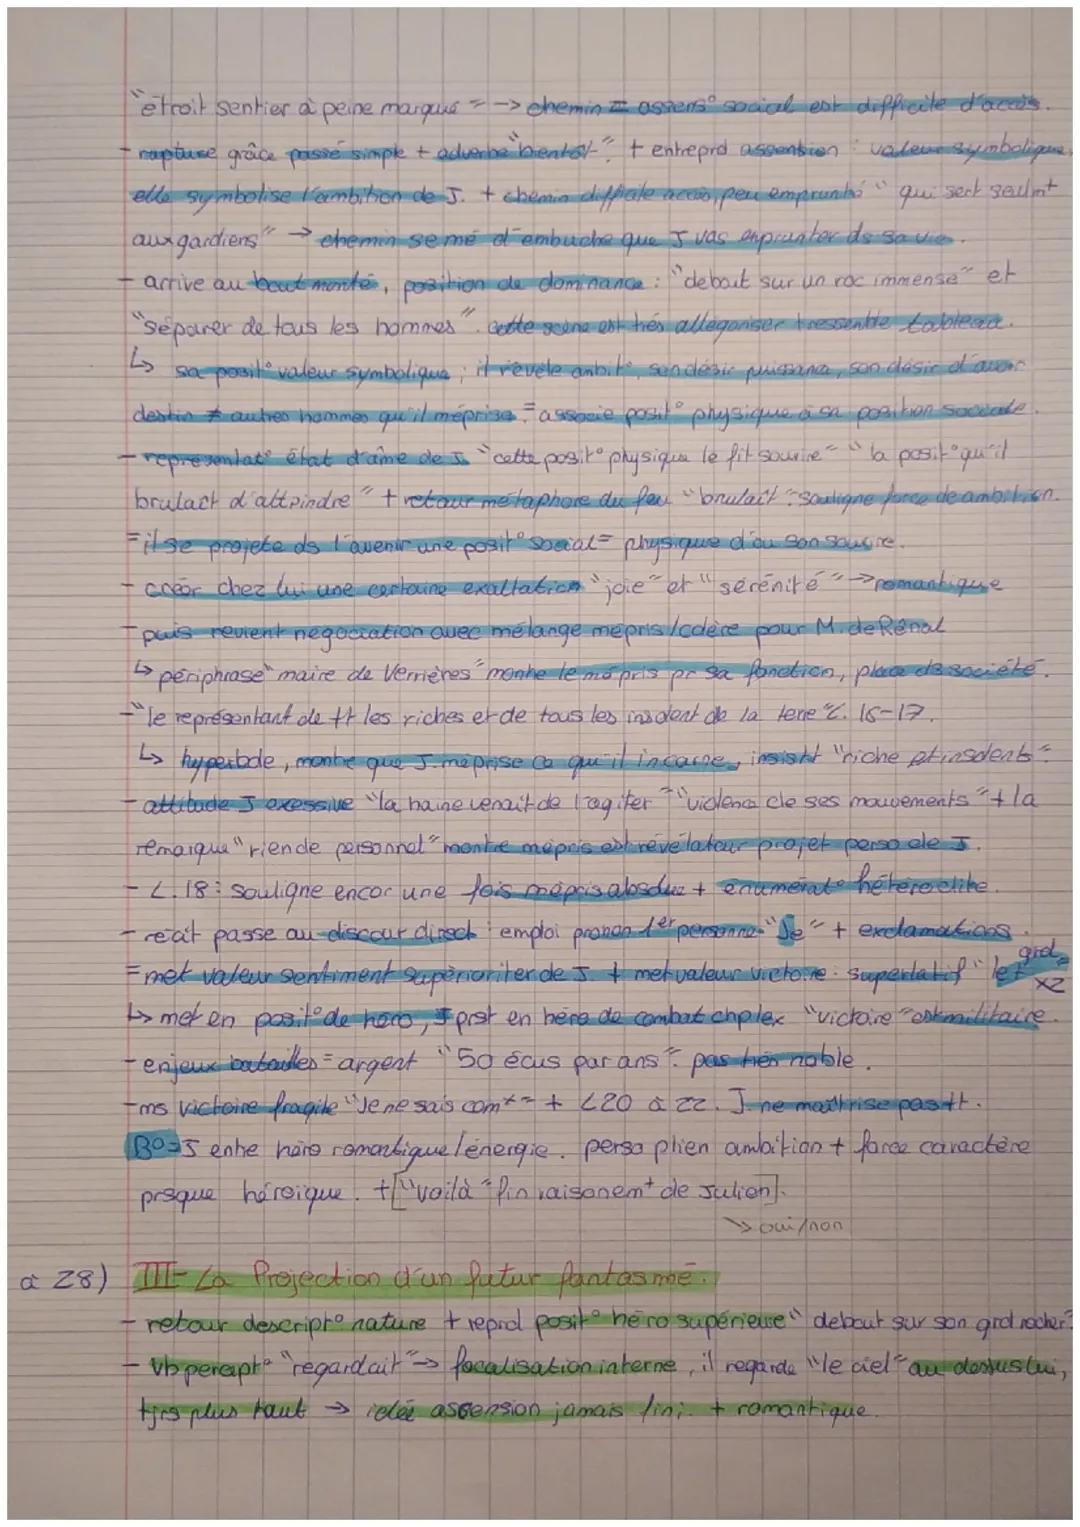 "étroit sentier à peine marqué" → chemin = ascens° social est difficile d'accès.
- rupture grâce passé simple + adverbe "bentôt" + entreprd assenbion : valeur symbolique,
elle symbolise l'ambition de J. + chemin difficile accès, peu emprunté "qui sert seulmt
aux gardiens" → chemin semé d'embuche que J vas enprunter ds sa vie.
- arrive au bout monté, position de dominance : "debout sur un roc immense" et
"séparer de tous les hommes". Cette scène est très allégoriser + ressemble tableau.
↳ sa posit° valeur symbolique ; il révèle ambit°, son désir puissance, son désir d'avoir
destin ≠ autres hommes qu'il méprise = associe posit° physique à sa position sociale.
- représentat° état d'âme de J. "cette posit° physique le fit sourire" "la posit° qu'il
brulait d'atteindre" + retour métaphore du feu "brulait" : souligne force de ambition.
= il se projete ds l'avenir une posit° social = physique d'ou son sourire.
- créer chez lui une certaine exaltation "joie" et "sérénité" → romantique
- puis revient négociation avec mélange mépris/colère pour M. de Rênal
↳ périphrase "maire de Verrières" montre le mépris pr sa fonction, place ds société.
- "le représentant de tt les riches et de tous les insolent de la terre" L. 16-17.
↳ hyperbole, montre que J. méprise ce qu'il incarne, insistt "riche et insolents".
- attitude J exessive "la haine venait de l'agiter" "violence de ses mouvements" + la
remarque "rien de personnel" montre mépris est révélateur projet perso de J.
- L.18 : souligne encor une fois mépris absolue + énumérat° hétéroclite.
- récit passe au discour direct : emploi pronon 1er personne "Je" + exclamations.
= met valeur sentiment supérioriter de J. + met valeur victoire. superlatif "le + grd" x2
↳ met en posit° de héro, J prst en héro de combat chp lex "victoire" est militaire.
- enjeux batailles = argent "50 écus par ans" : pas très noble.
- ms victoire fragile "Je ne sais comt" + L20 à 22. J. ne maitrise pas tt.
B° = J entre héro romantique/énergie. perso plien ambition + force caractère
presque héroïque. + ["voilà" fin raisonemt de Julien].
↘ oui/non
à 28) III- La Projection d'un futur fantasmé.
- retour descript° nature + reprd posit° héro supérieure "debout sur son grd rocher"
- Vb percept° "regardait" → focalisation interne, il regarde "le ciel" au dessus lui,
tjrs plus haut → idée assension jamais fini. + romantique.